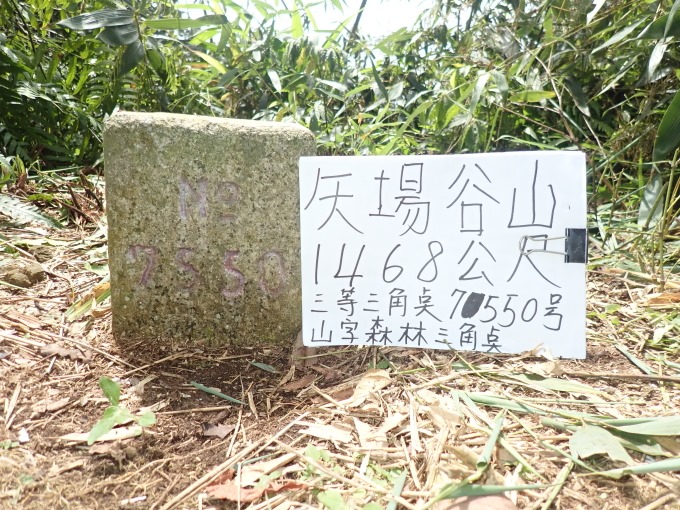 No
7550
矢場谷山
1468公尺
三等三角点7550号
山字森林三角点